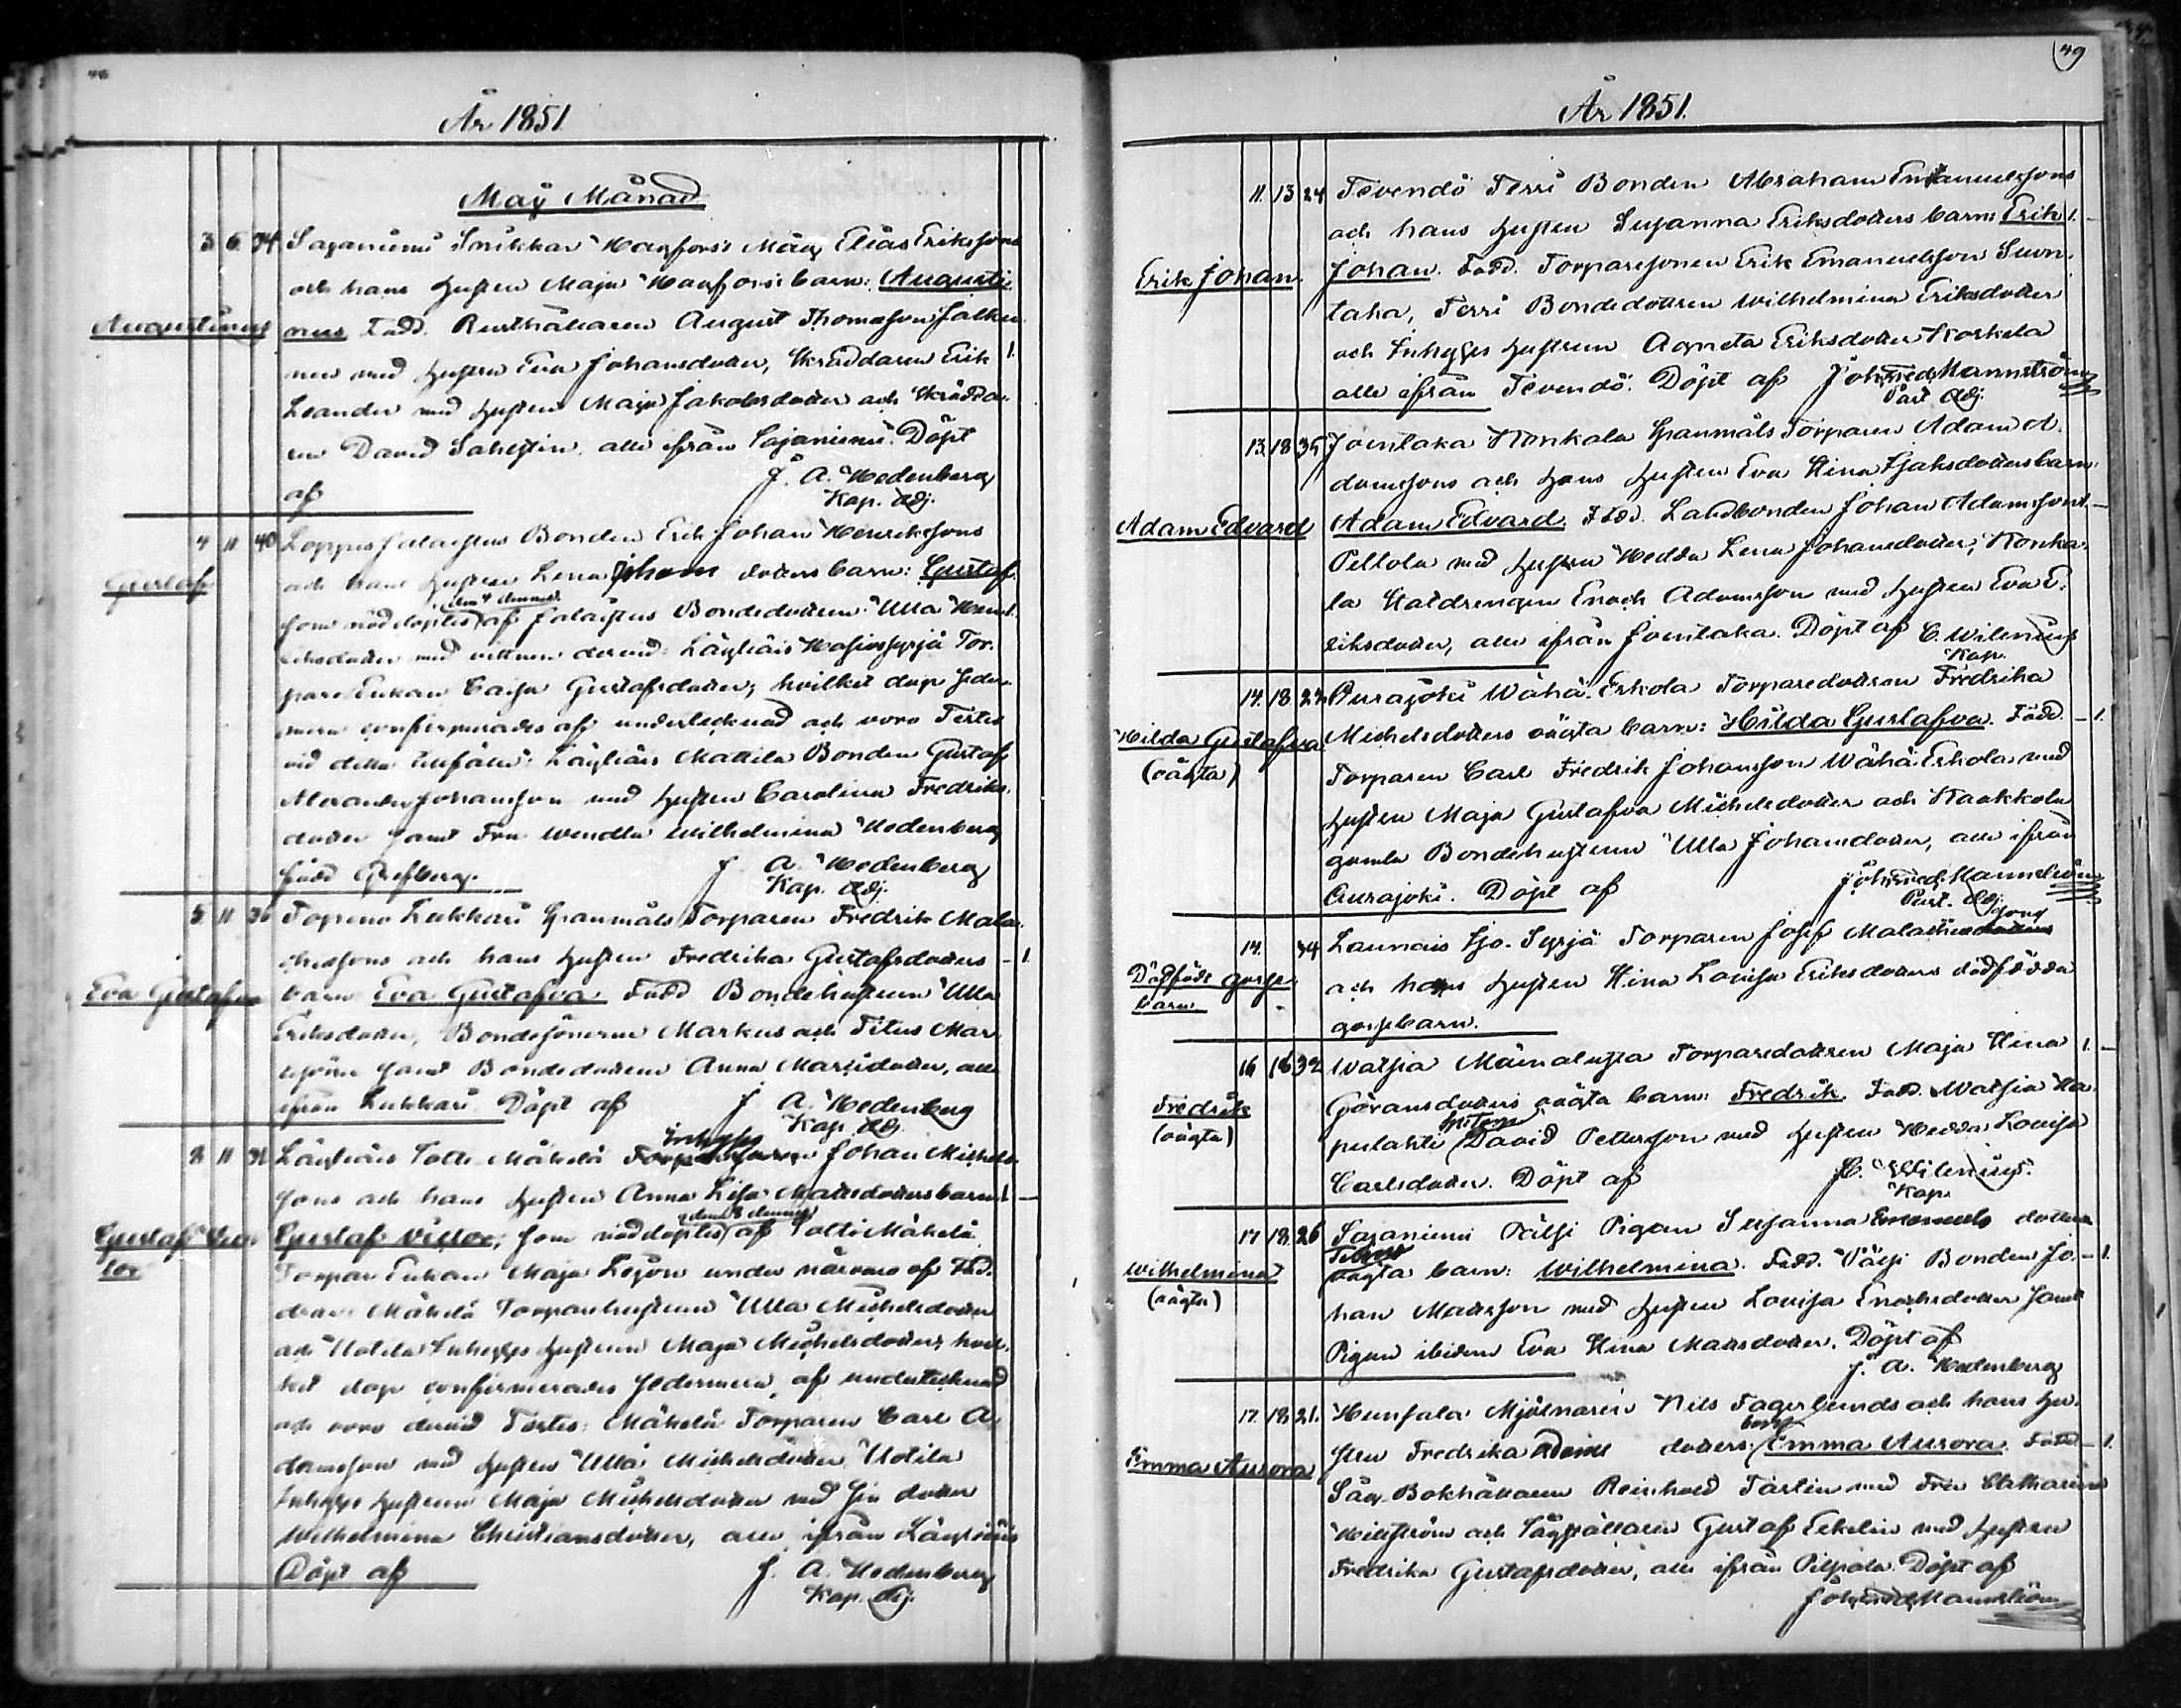 48
År 1851.
May Månad
3 6 34 Sajaniemi Snikkar Hagfors's Måg Elias Erikssons
och hans hustru Maja Hagfors's barn: Augusti-
Augustinus nus Fadd. Rusthållaren August Thomasson Jalka-
nen med hustru Eva Johansdotter, Skräddaren Erik 1.
Leander med hustru Maja Jakobsdotter och Skrädda-
ren David Sahlstin, alla ifrån Sajaniemi. Döpt
af J. A. Hedenberg
Kap. Adj.
4 11 40 Loppis Bonden Erik Johan Henrikssons
och hans hustru Lena Johans dotters barn: Gustaf
Gustaf
som nöddöptes den 4 dennes af Bondedottren Ulla Hen- 1.
riksdotter med vittnen dervid: Läyliäis Tor-
pare Enkan Caisa Gustafsdotter; hvilket dop seder-
mera confirmerades af undertecknad och voro Testes
vid detta tillfälle: Läyliäis Mattila Bonden Gustaf
Alexander Johansson med hustru Carolina Fredriks-
dotter samt Fru Wendla Wilhelmina Hedenberg
född Grefberg. J. A. Hedenberg
Kap. Adj.
5 11 36 Topeno Lukkari Grannmåls Torparen Fredrik Mala-
chissons och hans hustru Fredrika Gustafsdotters – 1.
Eva Gustafva barn Eva Gustafva Fadd Bondehustrun Ulla
Eriksdotter, Bondesönerna Markus och Titus Mar-
samt Bondedottren Anna Mattsdotter, alla
ifrån Lukkari. Döpt af J. A. Hedenberg
Kap. Adj.
8 11 Läyliäis Totti Mäkelä Inhyses Johan Michels-
sons och hans hustru Anna Lisa Mattsdotters barn 1. –
Gustaf Vic-
tor
Gustaf Victor; som nöddöptes den 8 dennes af Totti Mäkelä
Torpar Enkan Maja Lejon under närvaro af Fad-
drar Mäkelä Torparehustrun Ulla Michelsdotter
och Uotila Inhyses hustrun Maja Michelsdotter, hvil-
ket dop confirmerades sedermera af undertecknad
och voro dervid Testes: Mäkelä Torparen Carl A-
damsson med hustru Ulla Michelsdotter, Uotila
Inhyses hustrun Maja Michelsdotter med sin dotter
Wilhelmina Christiansdotter, alla ifrån Läyliäis
Döpt af J. A. Hedenberg
Kap. Adj.
49
År 1851.
11. 13 24 Tevendö Terri Bonden Abraham Emanuelssons
och hans hustru Susanna Eriksdotters barn: Erik 1. –
Erik Johan. Johan. Fadd. Torparesonen Erik Emanuelsson Suon-
taka, Terri Bondedottren Wilhelmina Eriksdotter
och Inhyses hustrun Agneta Eriksdotter Korkela
alla ifrån Tevendö. Döpt af Joh. Fred. Mannström
Past. Adj.
13. 18 35 Joentaka Konkala Grannmåls Torparen Adam A-
damssons och hans hustru Eva Stina Isaksdotters barn:
Adam Edvard Adam Edvard. Fadd. Landbonden Johan Adamsson 1. –
Peltola med hustru Hedda Lena Johansdotter, Konka-
la Statdrengen Enoch Adamsson med hustru Eva E-
riksdotter, alla ifrån Joentaka. Döpt af C. Wilenius
Kap.
14. 18. 22 Ourajoki Wähä-Erkola Torparedottren Fredrika
Michelsdotters oägta barn: Hilda Gustafva. Fadd. – 1.
Hilda Gustafva
(oägta)
Torparen Carl Fredrik Johansson Wähä-Erkola med
hustru Maja Gustafva Michelsdotter och Kaakkola
gamla Bondehustrun Ulla Johansdotter, alla ifrån
Ourajoki. Döpt af Joh. Fred. Mannström
Past. Adj.
14. 44 Launois Iso-Syrjä Torparen Josef Malachissons
och hans hustru Stina Lovisa Eriksdotters dödfödda
Dödfödt gosse-
barn
gossebarn.
16 16 32 Watsia Torparedottren Maja Stina 1. –
Göransdotters oägta barn: Fredrik. Fadd. Watsia Ha-
Fredrik
(oägta)
pulahti David Pettersson med hustru Hedda Lovisa
Carlsdotter. Döpt af C. Wilenius.
Kap.
17 18. 26 Sajaniemi Pälsi Pigan Susanna Emanuels dotters
oägta barn: Wilhelmina. Fadd. Pälsi Bonden Jo- – 1.
Wilhelmina
(oägta)
han Mattsson med hustru Lovisa Enochsdotter samt
Pigan ibidem Eva Stina Mattsdotter. Döpt af
J. A. Hedenberg
17. 18 21. Hunsala Mjölnaren Nils Fagerlunds och hans hu-
stru Fredrika dotters barn Emma Aurora. Fadd – 1.
Emma Aurora
Såg-Bokhållaren Reinhold Tärlin med Fru Catharina
Hillström och Sågställaren Gustaf Eekelin med hustru
Fredrika Gustafsdotter, alla ifrån Pilpala. Döpt af
Joh. Fred. Mannström